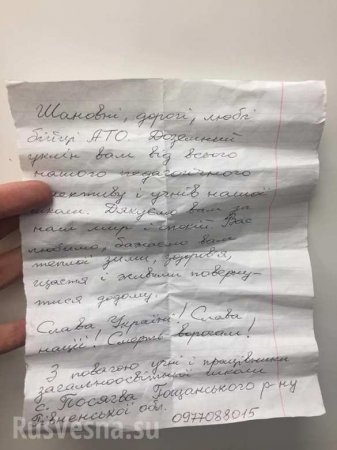 Шановні, дорогі, любі
бійці АТО. Доземний
уклін вам від всього
нашого педагогічного
колективу і учнів нашої
школи. Дякуємо вам за
наш мир і спокій Вас
любимо, бажаємо вам
теплої зими, здоров'я,
щастя і живими поверну-
тися додому.
Слава Україні! Слава
нації! Смерть ворогам!
З повагою учні і працівники
загальноосвітньої школи
с. Посягва Гощанського р-ну
Рівненської обл.
0977088015
Rusvesna.su